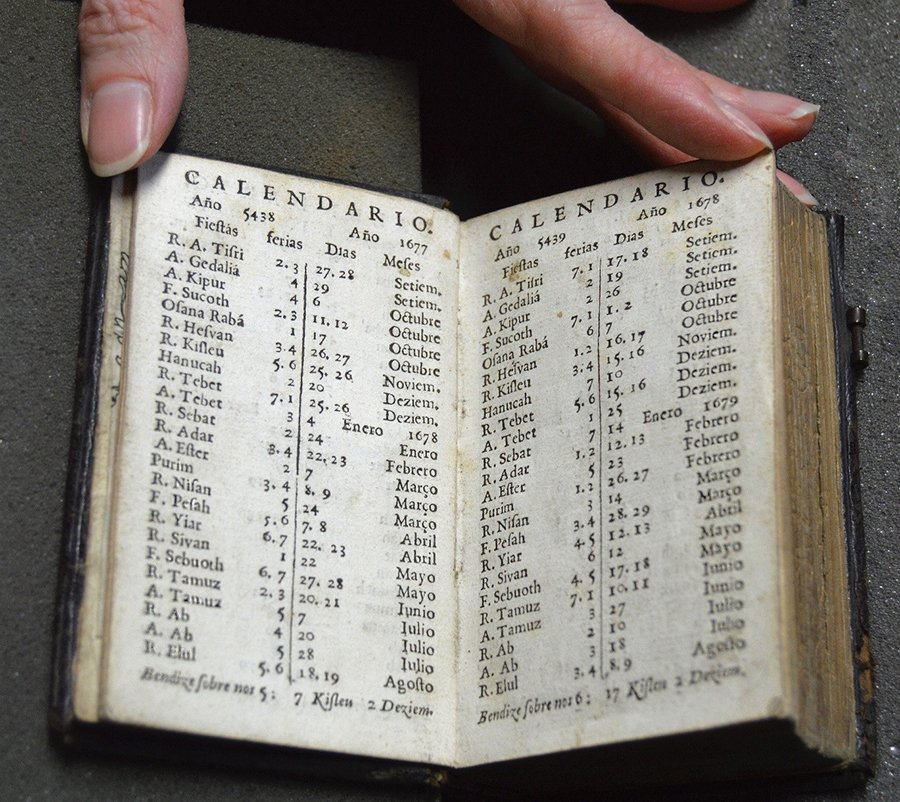 CALENDARIO.
Año 5438 Año 1677
Fieſtas ferias Dias Meſes
R. A. Tiſri 2.3 27.28 Setiem.
A. Gedaliá 4 29 Setiem.
A. Kipur 4 6 Octubre
F. Sucoth 2.3 11.12 Octubre
Oſana Rabá 1 17 Octubre
R. Heſvan 3.4 26.27 Octubre
R. Kiſleu 5.6 25.26 Noviem.
Hanucah 2 20 Deziem.
R. Tebet 7.1 25.26 Deziem.
A. Tebet 3 4 Enero 1678
R. Sebat 2 24 Enero
R. Adar 3.4 22,23 Febrero
A. Eſter 2 7 Março
Purim 3.4 8.9 Março
R. Niſan 5 24 Março
F. Peſah 5.6 7.8 Abril
R. Yiar 6.7 22. 23 Abril
R. Sivan 1 22 Mayo
F. Sebuoth 6.7 27.28 Mayo
R. Tamuz 2.3 20.21 Junio
A. Tamuz 5 7 Julio
R. Ab 4 20 Julio
A. Ab 5 28 Julio
R. Elul 5.6 18.19 Agoſto
Bendize ſobre nos 5: 7 Kiſleu 2 Deziem.
CALENDARIO.
Año 5439 Año 1678
Fieſtas ferias Dias Meſes
R. A. Tiſri 7.1 17.18 Setiem.
A. Gedaliá 2 19 Setiem.
A. Kipur 2 26 Setiem.
F. Sucoth 7.1 1.2 Octubre
Oſana Rabá 6 7 Octubre
R. Heſvan 1.2 16,17 Octubre
R. Kiſleu 3.4 15.16 Noviem.
Hanucah 7 10 Deziem.
R. Tebet 5.6 15.16 Deziem.
A. Tebet 1 25 Deziem.
R. Sebat 7 14 Enero 1679
R. Adar 1.2 12.13 Febrero
A. Eſter 5 23 Febrero
Purim 1.2 26.27 Febrero
R. Niſan 3 14 Março
F. Peſah 3.4 28.29 Março
R. Yiar 4.5 12.13 Abril
R. Sivan 6 12 Mayo
F. Sebuoth 4.5 17.18 Mayo
R. Tamuz 7.1 10.11 Junio
A. Tamuz 3 27 Junio
R. Ab 2 10 Julio
A. Ab 3 18 Julio
R. Elul 3.4 8,9 Agoſto
Bendize ſobre nos 6: 17 Kiſleu 2 Deziem.